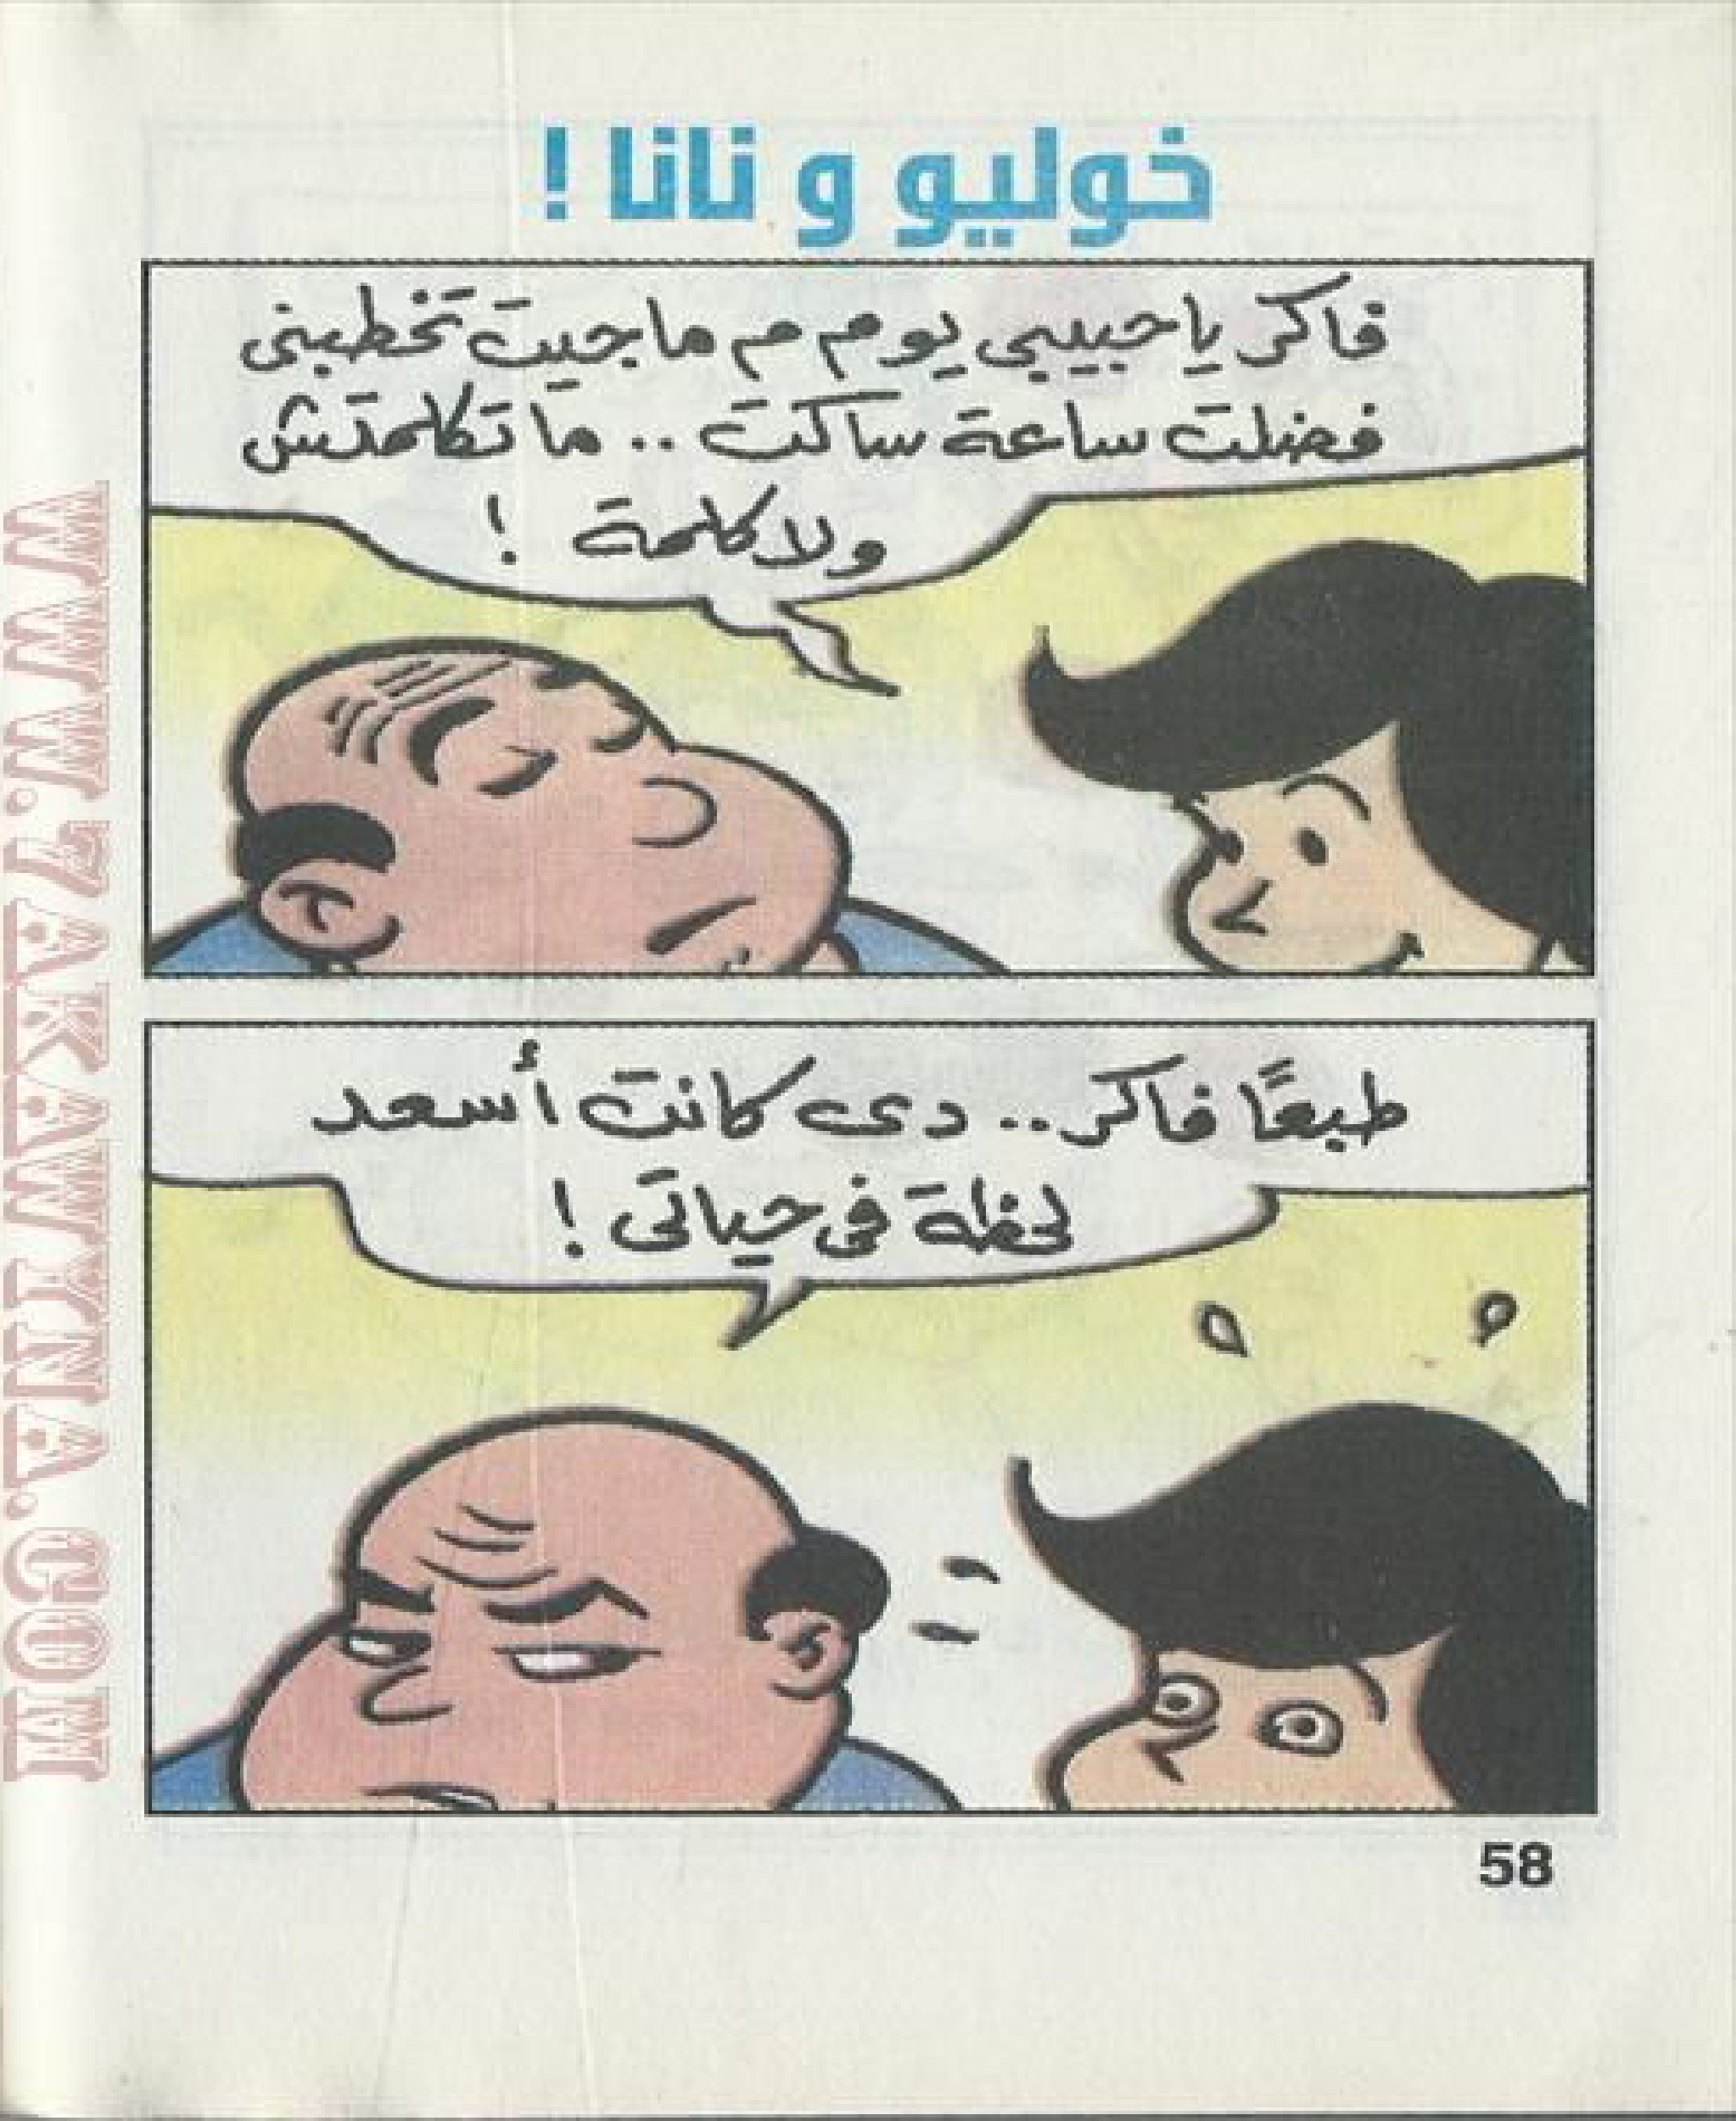 خوليو و نانا !
فاكر ياحبيبي يوم م ماجيت تخطبنى
فضلت ساعة ساكت .. ما تكلمتش
ولا كلمة !
طبعًا فاكر .. دى كانت أسعد
لحظة فى حياتى !
58
WWW.7AKAWITNA.COM